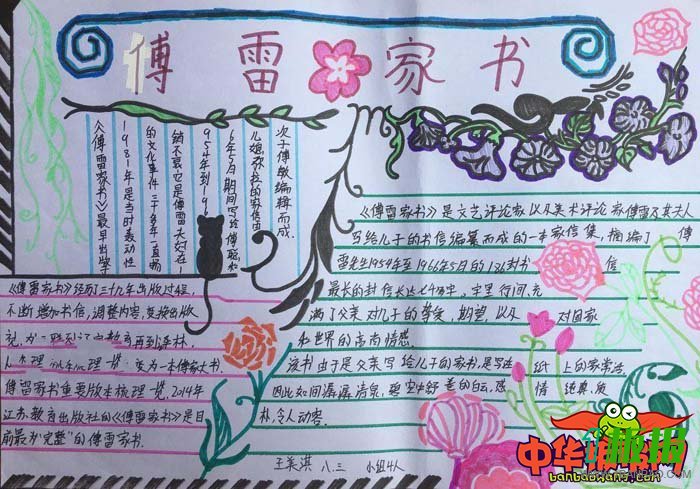 傅雷家书
《傅雷家书》最早出版于
1981年是当时轰动性
的文化事件三十多年一直畅
销不衰它是傅雷夫妇在1
954年到196
6年5月期间写给傅聪和
儿媳弥拉的家信由
次子傅敏编辑而成
《傅雷家书》经历三十几年出版过程,
不断增加书信,调整内容,变换出版
再到译林
一览 变为一本傅家大书.
傅雷家书重要版本梳理一览,2014年
江苏教育出版社的《傅雷家书》是目
前最为"完整"的傅雷家书.
《傅雷家书》是文艺评论家以及美术评论家傅雷及其夫人
写给儿子的书信编纂而成的一本家信集,摘编了 傅
雷先生1954年至1966年5月的186封书 信
最长的封信长达 字里行间,充
满了父亲对儿子的挚爱,期望,以及 对国家
和世界的高尚情感.
该书由于是父亲写给儿子的家书,是写在 纸上的家常话,
因此如同潺潺清泉,碧空中舒卷的白云,感 情纯真、质
朴,令人动容.
王美淇 八.三 小组4人
中华板报网
banbaowang.com